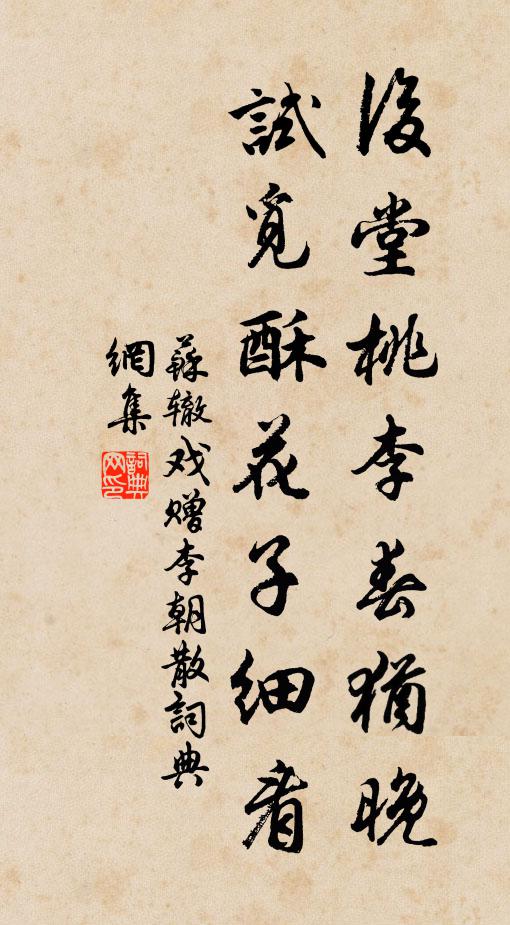 後堂桃李春猶晚
試覓酥花子細看
蘇辙戏赠李朝散詞典
網集
詞典网印